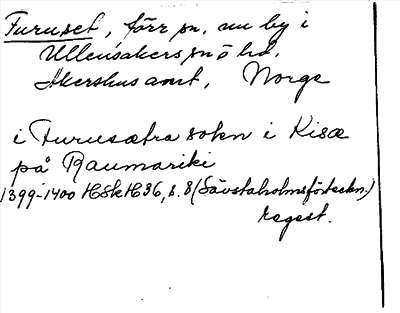 Furuset, förr sn, nu by i
Ullensakers sn o hd,
Akershus amt, Norge
i Furusætra sokn i Kisæ
på Raumariki
1399-1400 HSkH36, s. 8 (Sävstaholmsförteckn.)
regest.